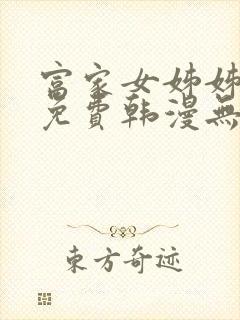 富家女姊姊
免費韩漫無
東方奇迹